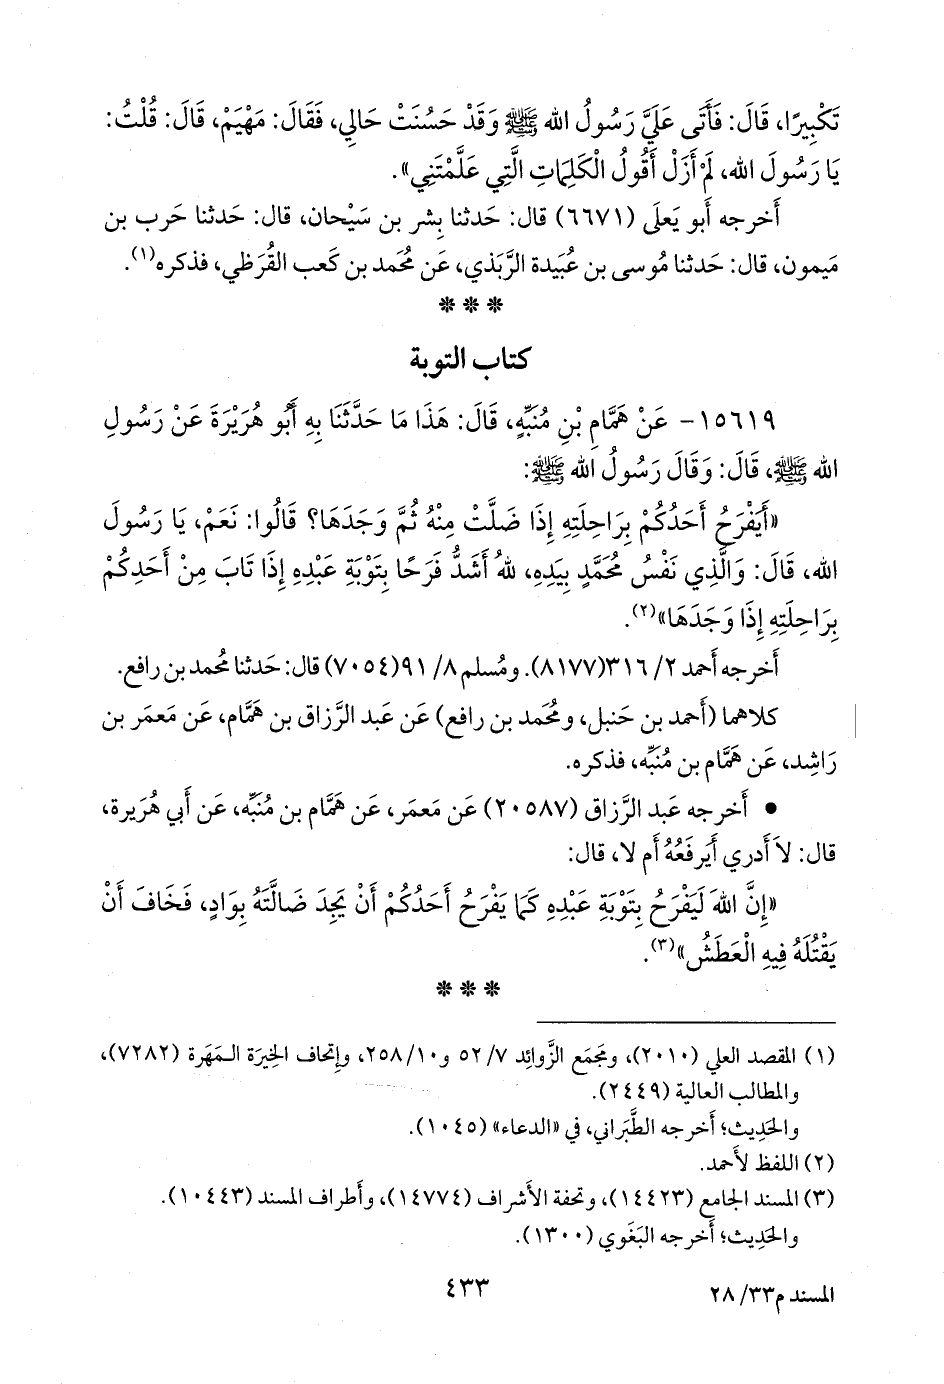 تَكْبِيرًا، قَالَ: فَأَتَى عَلَيَّ رَسُولُ الله ﷺ وَقَدْ حَسُنَتْ حَالِي، فَقَالَ: مَهْيَمْ، قَالَ: قُلْتُ:
يَا رَسُولَ الله، لَمْ أَزَلْ أَقُولُ الْكَلِمَاتِ الَّتِي عَلَّمْتَنِي».
أَخرجه أَبو يَعلَى (٦٦٧١) قال: حَدثنا بِشر بن سَيْحان، قال: حَدثنا حَرب بن
مَيمون، قال: حَدثنا مُوسى بن عُبيدة الرَّبَذي، عَن مُحمد بن كَعب القُرَظي، فذكره(١).
* * *
كتاب التوبة
١٥٦١٩- عَنْ هَمَّامِ بْنِ مُنَبِّهٍ، قَالَ: هَذَا مَا حَدَّثَنَا بِهِ أَبُو هُرَيْرَةَ عَنْ رَسُولِ
الله ﷺ، قَالَ: وَقَالَ رَسُولُ الله ﷺ:
«أَيَفْرَحُ أَحَدُكُمْ بِرَاحِلَتِهِ إِذَا ضَلَّتْ مِنْهُ ثُمَّ وَجَدَهَا؟ قَالُوا: نَعَمْ، يَا رَسُولَ
الله، قَالَ: وَالَّذِي نَفْسُ مُحَمَّدٍ بِيَدِهِ، للهُ أَشَدُّ فَرَحًا بِتَوْبَةِ عَبْدِهِ إِذَا تَابَ مِنْ أَحَدِكُمْ
بِرَاحِلَتِهِ إِذَا وَجَدَهَا»(٢).
أَخرجه أَحمد ٢/ ٣١٦(٨١٧٧). ومُسلم ٨/ ٩١(٧٠٥٤) قال: حَدثنا مُحمد بن رافع.
كلاهما (أَحمد بن حَنبل، ومُحمد بن رافع) عَن عَبد الرَّزاق بن هَمَّام، عَن مَعمَر بن
رَاشِد، عَن هَمَّام بن مُنَبِّه، فذكره.
• أَخرجه عَبد الرَّزاق (٢٠٥٨٧) عَن مَعمَر، عَن هَمَّام بن مُنَبِّه، عَن أَبي هُرَيرة،
قال: لاَ أَدري أَيَرفَعُهُ أَم لا، قال:
«إِنَّ اللهَ لَيَفْرَحُ بِتَوْبَةِ عَبْدِهِ كَمَا يَفْرَحُ أَحَدُكُمْ أَنْ يَجِدَ ضَالَّتَهُ بِوَادٍ، فَخَافَ أَنْ
يَقْتُلَهُ فِيهِ الْعَطَشُ»(٣).
* * *
(١) المقصد العلي (٢٠١٠)، ومَجمَع الزَّوائِد ٧/ ٥٢ و١٠/ ٢٥٨، وإِتحاف الخِيرَة الـمَهَرة (٧٢٨٢)،
والمطالب العالية (٢٤٤٩).
والحَدِيث؛ أَخرجه الطَّبَراني، في «الدعاء» (١٠٤٥).
(٢) اللفظ لأَحمد.
(٣) المسند الجامع (١٤٤٢٣)، وتحفة الأَشراف (١٤٧٧٤)، وأَطراف المسند (١٠٤٤٣).
والحَدِيث؛ أَخرجه البَغَوي (١٣٠٠).
المسند م٣٣/ ٢٨
٤٣٣